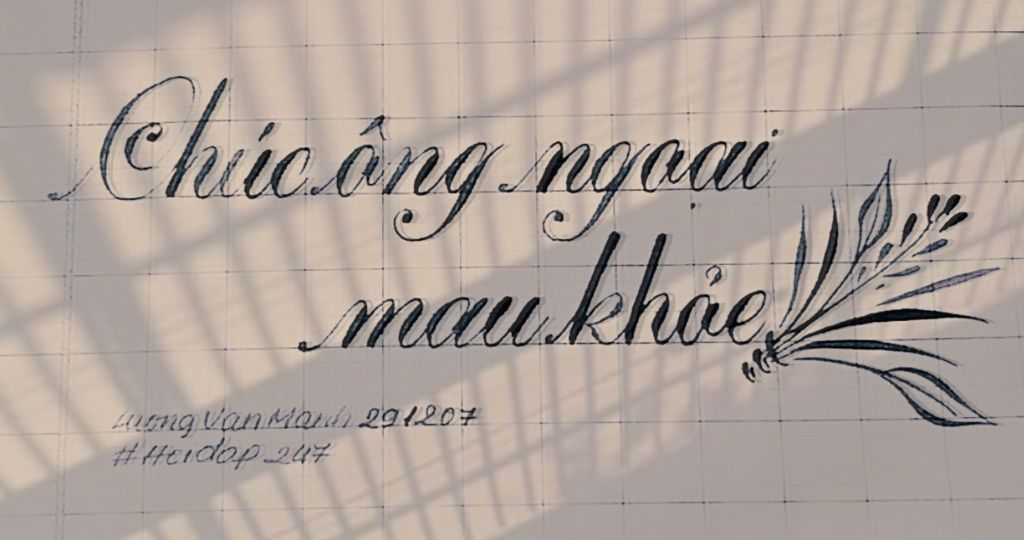 Chúc ông ngoại
mau khỏe
Lương Văn Mạnh 291207
#Hỏidap 247